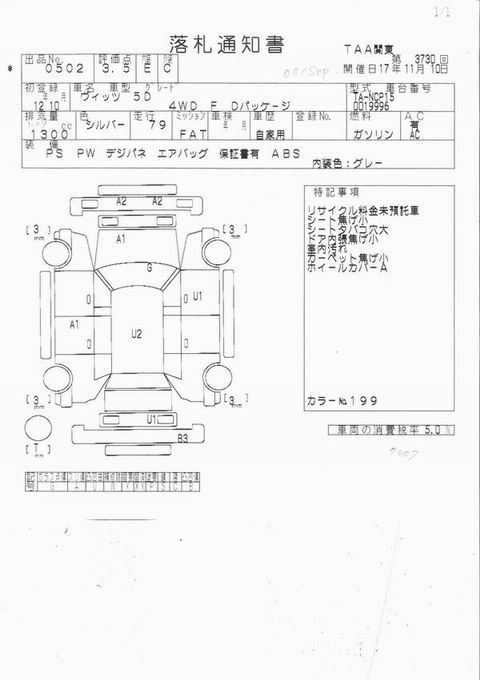 1/1
落札通知書
TAA関東
第 3730 回
開催日17年11月10日
出品No. 評価点
* 0502 3.5 E C
初登録 車名 車型 グレード 型式 車台番号
年 月 ヴィッツ 5D TA-NCP15
12 10 4WD F Dパッケージ 0019996
排気量 色 走行 ミッション 車検 車歴 登録No. 燃料 AC
1300 cc シルバー 79 FAT 年 月 自家用 ガソリン 有 AC
装備
PS PW デジパネ エアバッグ 保証書有 ABS
内装色:グレー
特記事項
リサイクル料金未預託車
シート焦げ小
シートタバコ穴大
ドア内張焦げ小
室内汚れ
カーペット焦げ小
ホイールカバーA
カラーNo.199
A2 A2
[3] mm A1 [3] mm
G
U1
A1
U2
[3] mm [3] mm
U1
[T] mm B3
車両の消費税率 5.0 %